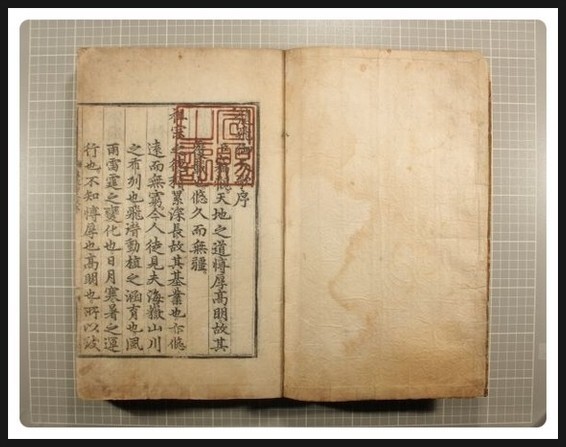 宣賜之記
歌序
惟天地之道博厚高明故其
載也悠久而無疆
祖宗之德積累深長故其基業也亦悠
遠而無窮今人徒見夫海嶽山川
之布列也飛潛動植之涵育也風
雨雷霆之變化也日月寒暑之運
行也不知博厚也高明也所以致